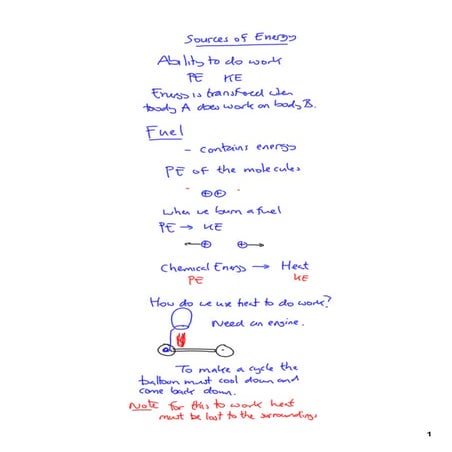 Sources of Energy
Ability to do work
PE KE
Energy is transfered when
body A does work on body B.
Fuel
- contains energy
PE of the molecules
- ⊕⊕ -
when we burn a fuel
PE → KE
⊕ ⊕
Chemical Energy → Heat
PE KE
How do we use heat to do work?
Need an engine.
To make a cycle the
balloon must cool down and
come back down.
Note for this to work heat
must be lost to the surroundings
1